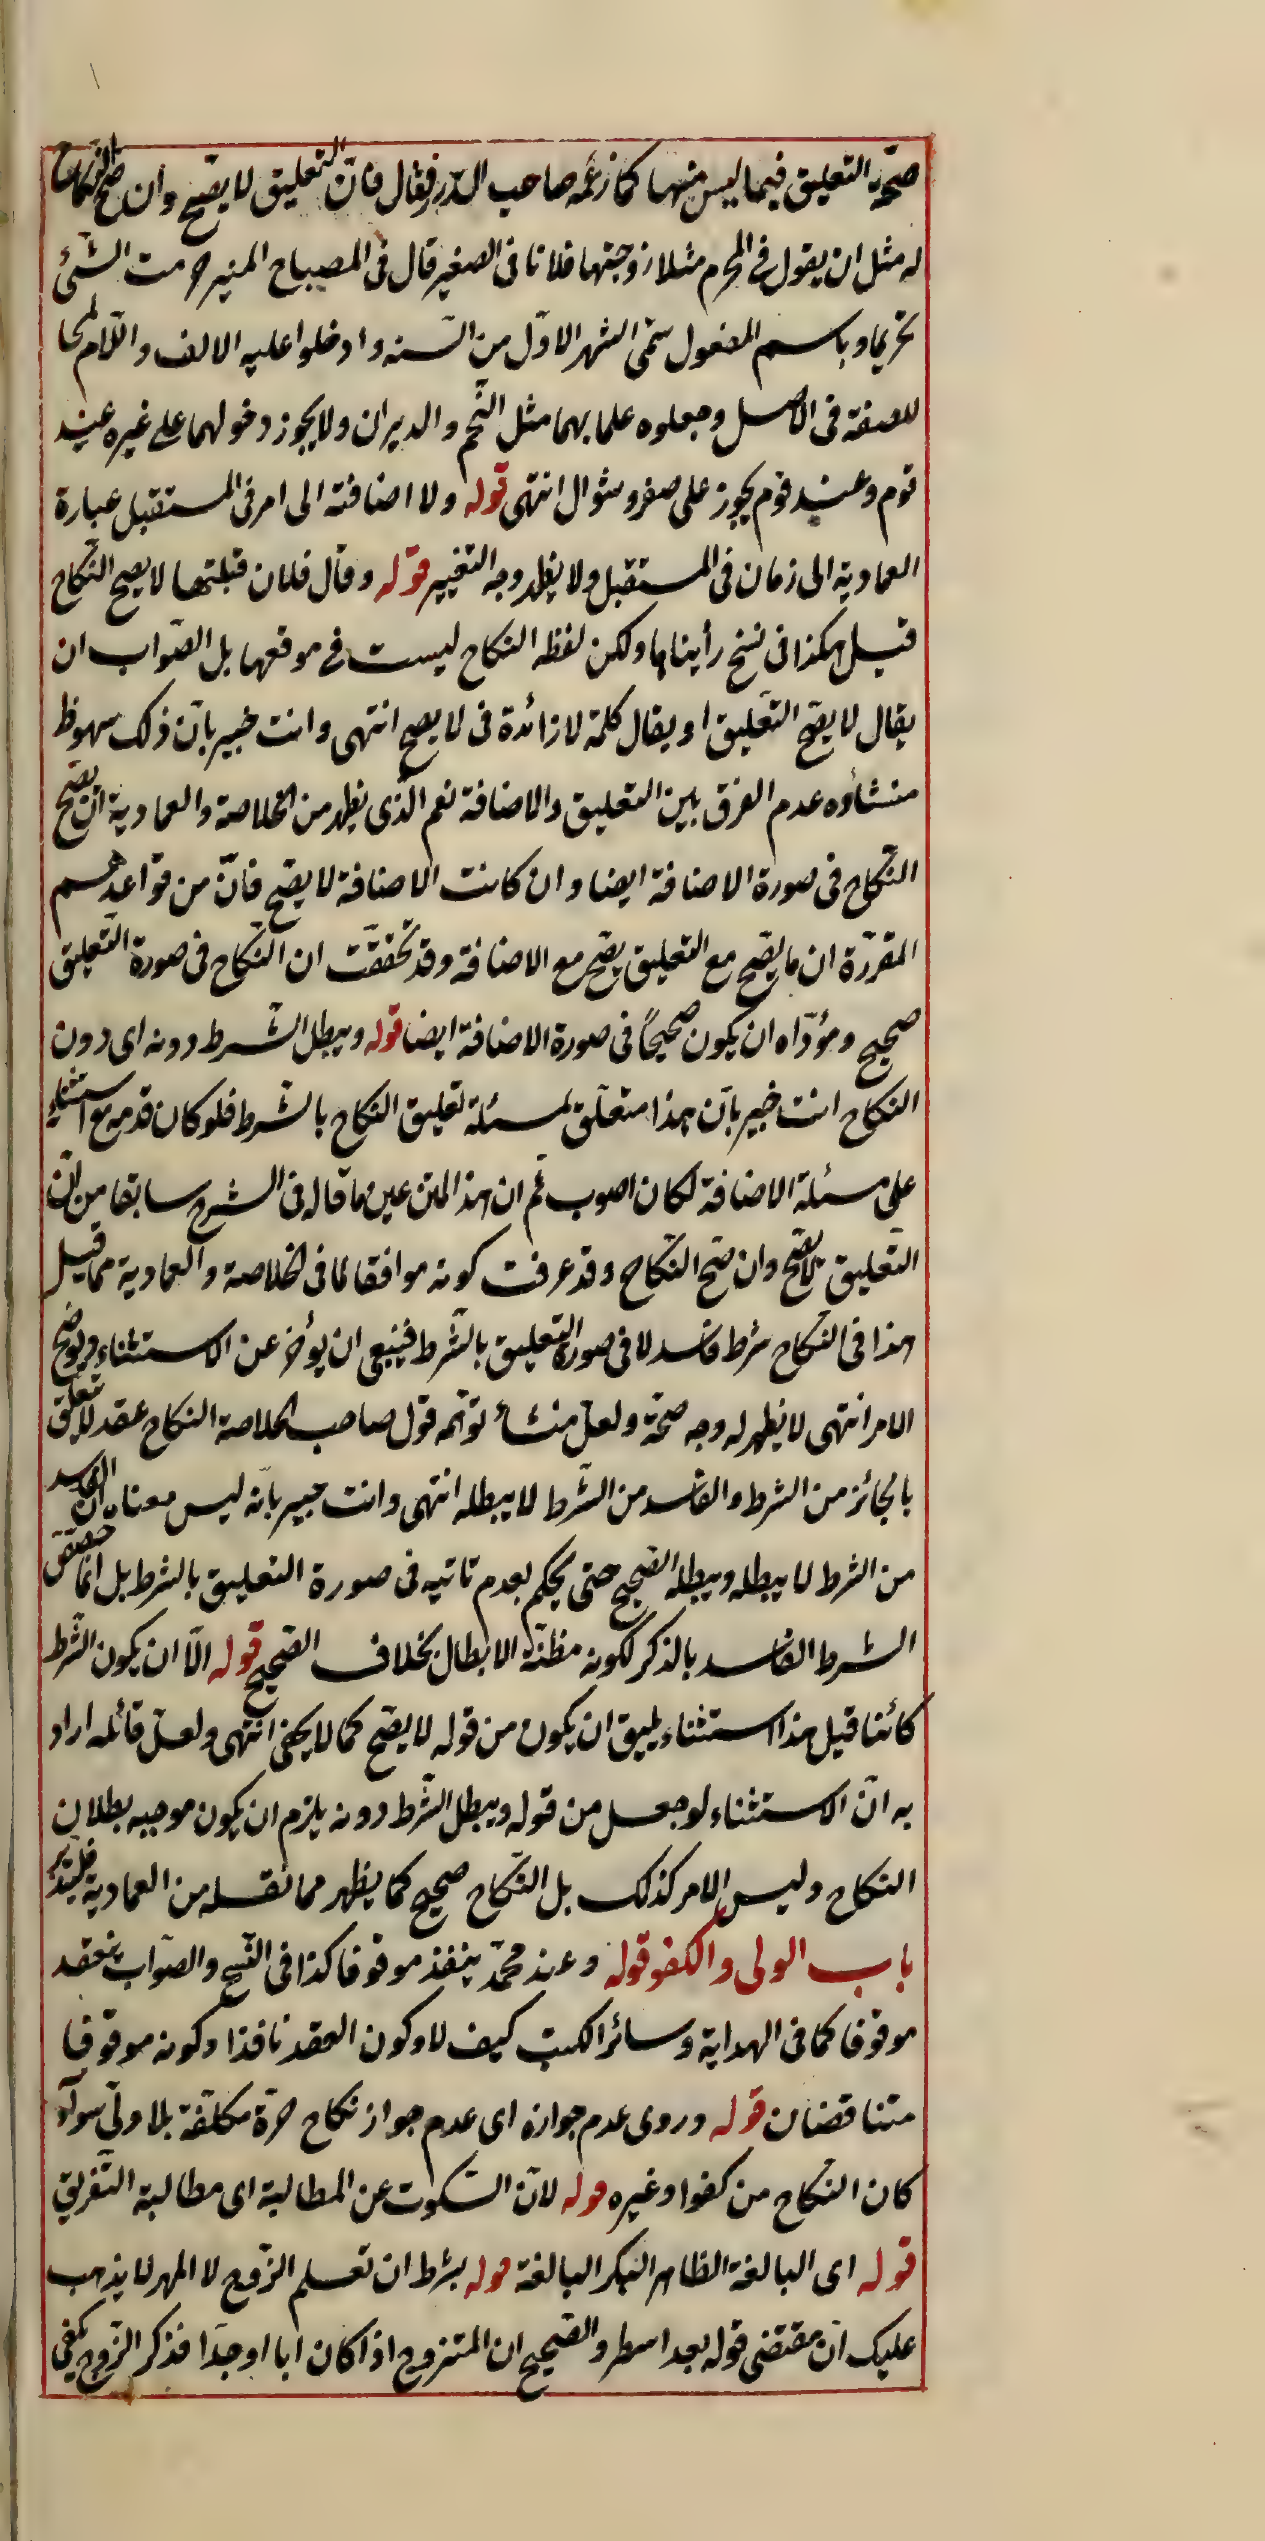 صحة التعليق فيما ليس منها كما زعمه صاحب الدرر فقال فان التعليق لا يصح وان صح النكاح
له مثل ان يقول فى المحرم مثلا زوجتها فلانا فى الصفر قال فى المصباح المنير حرمت الشئ
تحريما وباسم المفعول سمى الشهر الاول من السنة وادخلوا عليه الالف واللام لمحا
للصفة فى الاصل وجعلوه علما بهما مثل النجم والدبران ولا يجوز دخولهما على غيره عند
قوم وعند قوم يجوز على صفر وشوال انتهى قوله ولا اضافته الى امر فى المستقبل عبارة
العمادية الى زمان فى المستقبل ولا يظهر وجه التغيير قوله وقال فلان قبلتها لا يصح النكاح
قيل هكذا فى نسخ رأيناها ولكن لفظ النكاح ليست فى موقعها بل الصواب ان
يقال لا يصح التعليق او يقال كلمة لا زائدة فى لا يصح انتهى وانت خبير بان ذلك سهو ظ
منشاؤه عدم الفرق بين التعليق والاضافة نعم الذى يظهر من الخلاصة والعمادية ان يصح
النكاح فى صورة الاضافة ايضا وان كانت الاضافة لا يصح فان من قواعدهم
المقررة ان ما يصح مع التعليق يصح مع الاضافة وقد تحققت ان النكاح فى صورة التعليق
صحيح ومؤداه ان يكون صحيحاً فى صورة الاضافة ايضا قوله ويبطل الشرط دونه اى دون
النكاح انت خبير بان هذا متعلق لمسئلة تعليق النكاح بالشرط فلو كان قدم مع استثنائه
على مسئلة الاضافة لكان اصوب ثم ان هذا المتن عين ما قاله فى الشرح سابقا من ان
التعليق لا يصح وان صح النكاح وقد عرفت كونه موافقا لما فى الخلاصة والعمادية مما قيل
هذا فى النكاح بشرط فاسد لا فى صورة التعليق بالشرط فينبغى ان يؤخر عن الاستثناء ويوضح
الامر انتهى لا يظهر له وجه صحة ولعل منشأ توهمه قول صاحب الخلاصة النكاح عقد لا يتعلق
بالجائز من الشرط والفاسد من الشرط لا يبطله انتهى وانت خبير بانه ليس معناه ان الفاسد
من الشرط لا يبطله ويبطله الصحيح حتى يحكم بعدم تاتيه فى صورة التعليق بالشرط بل انما خصص
الشرط الفاسد بالذكر لكونه مظنة الابطال بخلاف الصحيح قوله الا ان يكون الشرط
كائنا قيل هذا استثناء يليق ان يكون من قوله لا يصح كما لا يخفى انتهى ولعل قائله اراد
به ان الاستثناء لو جعل من قوله ويبطل الشرط دونه يلزم ان يكون موجبه بطلان
النكاح وليس الامر كذلك بل النكاح صحيح كما يظهر مما نقله من العمادية فليتدبر
باب الولى والكفو قوله وعند محمد ينفذ موقوفا كذا فى النسخ والصواب ينعقد
موقوفا كما فى الهداية وسائر الكتب كيف لا وكون العقد نافذا وكونه موقوفا
متناقضان قوله وروى عدم جوازه اى عدم جواز نكاح حرة مكلفة بلا ولى سواء
كان النكاح من كفوا وغيره قوله لان السكوت عن المطالبة اى مطالبة التفريق
قوله اى البالغة الظاهر البكر البالغة قوله بشرط ان تعلم الزوج لا المهر لا يذهب
عليك ان مقتضى قوله بعد اسطر والصحيح ان المتزوج اذا كان ابا او جدا فذكر الزوج يكفى